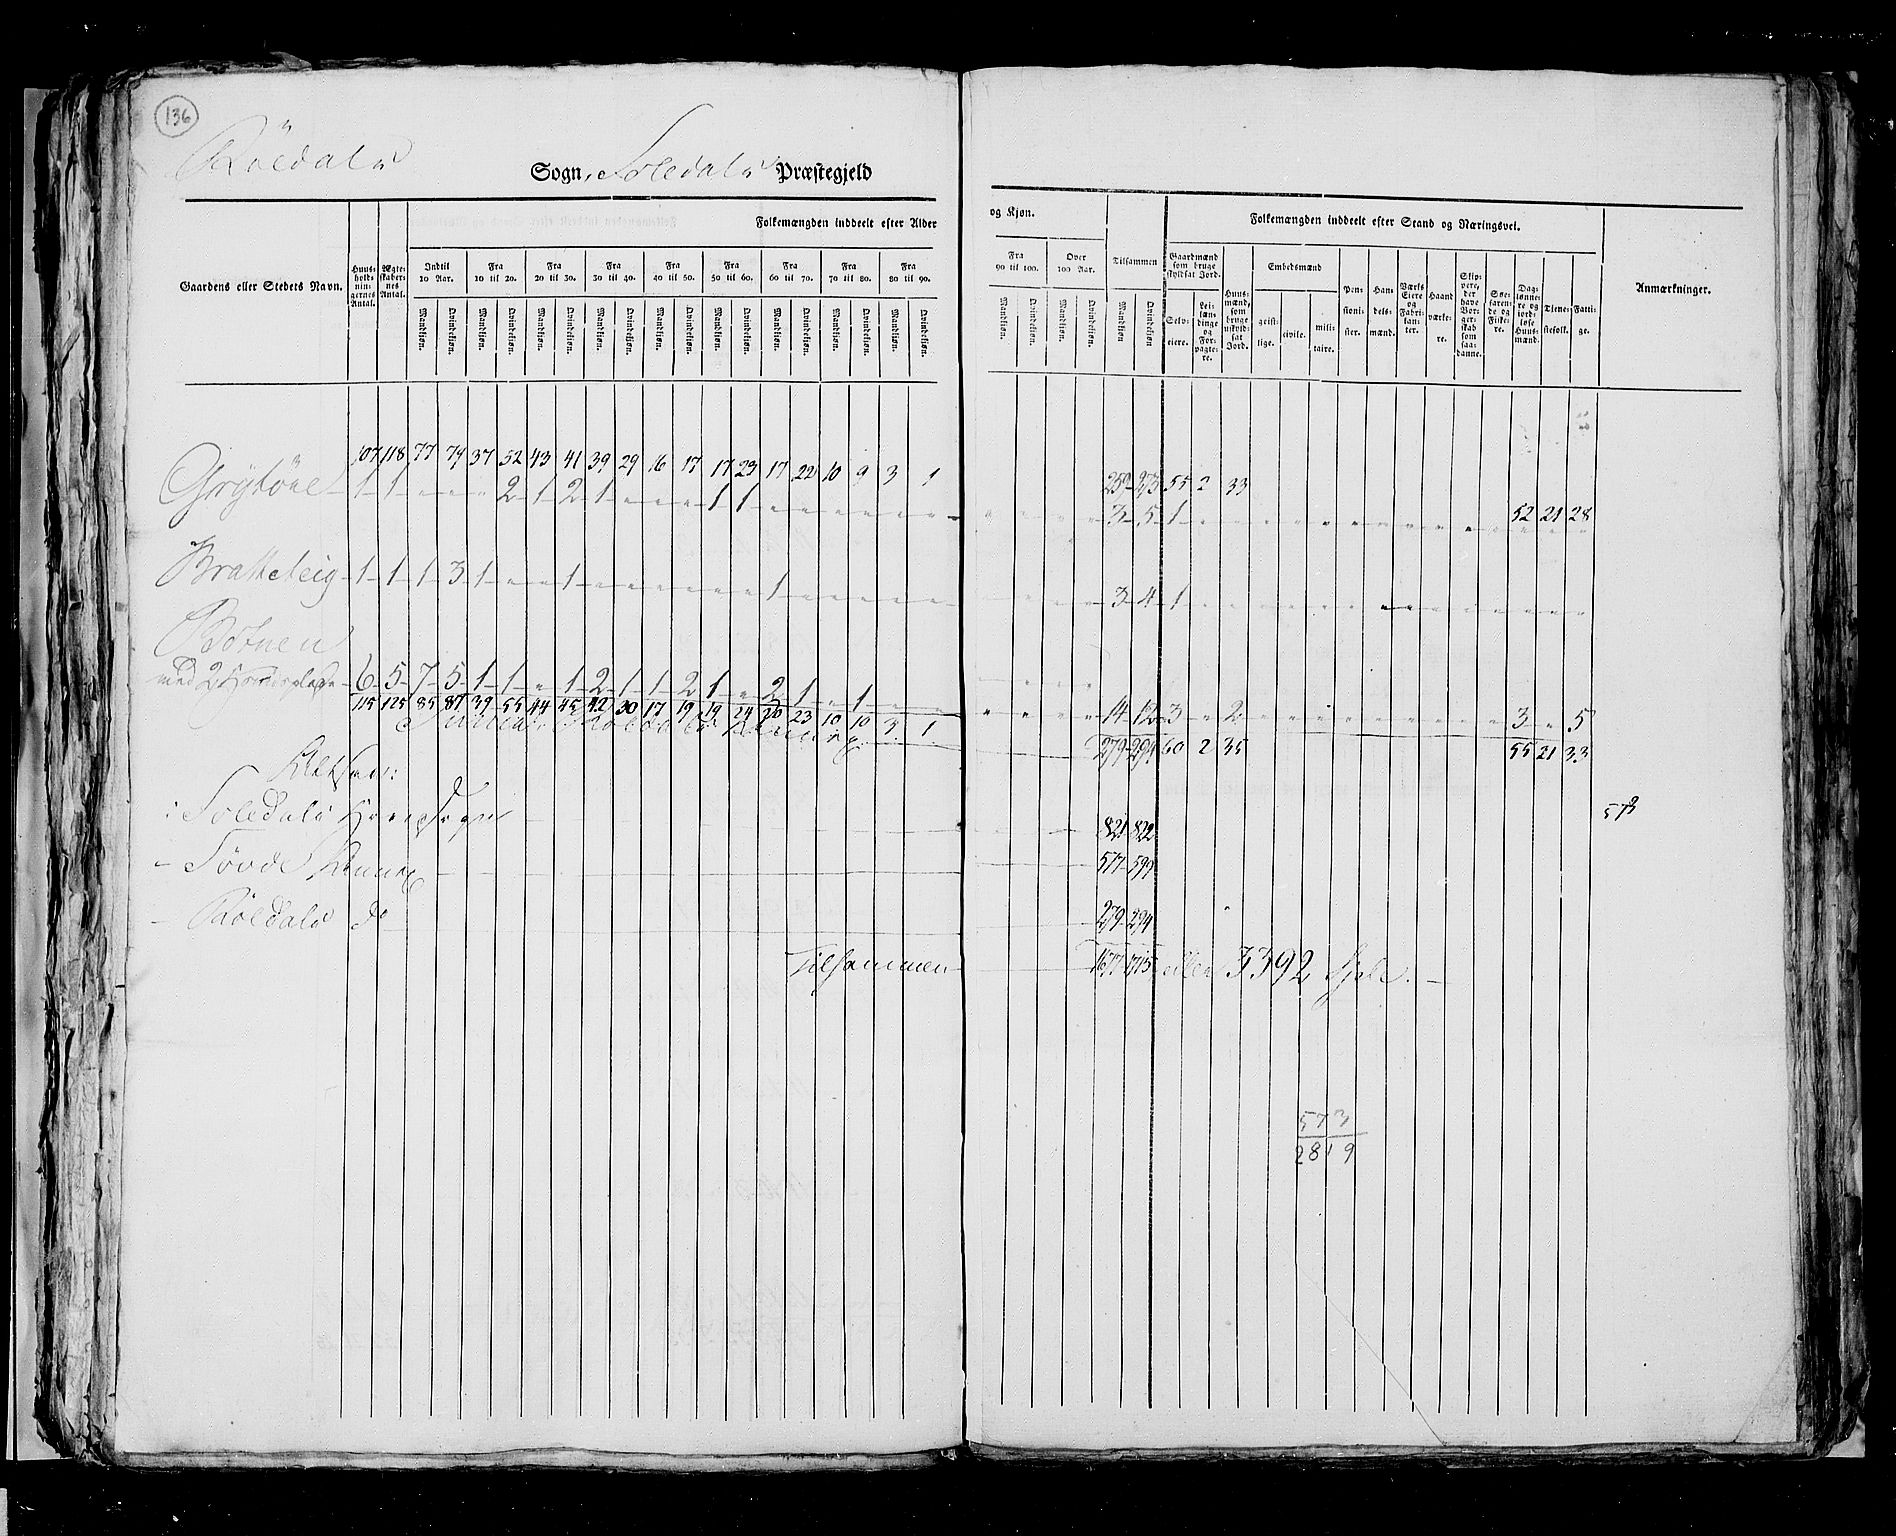 136
Röldals Sogn, Soledals Præstegjeld
Folkemængden inddeelt efter Alder og Kjøn.
Folkemængden inddeelt efter Stand og Næringsvei.
Gaardens eller Stedets Navn.
Huus-holdnin-gernes Antal.
Ægte-skaber-nes Antal.
Indtil 10 Aar.
Fra 10 til 20.
Fra 20 til 30.
Fra 30 til 40.
Fra 40 til 50.
Fra 50 til 60.
Fra 60 til 70.
Fra 70 til 80.
Fra 80 til 90.
Fra 90 til 100.
Over 100 Aar.
Tilsammen
Mandkjøn. Qvindekjøn.
Gaardmænd som bruge skyldsat Jord.
Selv-eiere.
Lei-læn-dinge og For-pagte-re.
Huus-mænd, som bruge uskyld-sat Jord.
Embedsmænd
geist-lige.
civile.
mili-taire.
Pen-sioni-ster.
Han-dels-mænd.
Værks Eiere og Fabri-kan-ter.
Haand værke-re.
Skip-pere, der have Bor-ger-skab som saa-danne.
Søe-faren-de og Fiske-re.
Dag-lønne-re og jord-løse Huus-mænd.
Tjene-stefolk.
Fatti-ge.
Anmærkninger.
107 118 77 79 37 52 43 41 39 29 16 17 17 23 17 22 10 9 3 1 259 273 55 2 33 52 21 28
Gryting 1 1 " " " 2 1 2 1 " " " 1 1 " " " " " " " " " " 3 5 1
Bratteteig 1 1 1 3 1 " " 1 " " " " " " 1 " " " " " " " " " 3 4 1
Botnen
med 2 Huuspladse 6 5 7 5 1 1 " 1 2 1 1 2 1 " 2 1 " 1 " " " " " " 14 12 3 " 2 3 " 5
115 125 85 87 39 55 44 45 42 30 17 19 19 24 20 23 10 10 3 1 279 294 60 2 35 55 21 33
Röldals Annex
Altsaa:
i Soledals Hovedsogn 821 822
573
- Sövde Annex 577 599
- Röldals do 279 294
Tilsammen 1677 1715 eller 3392 Sjele.
573
2819